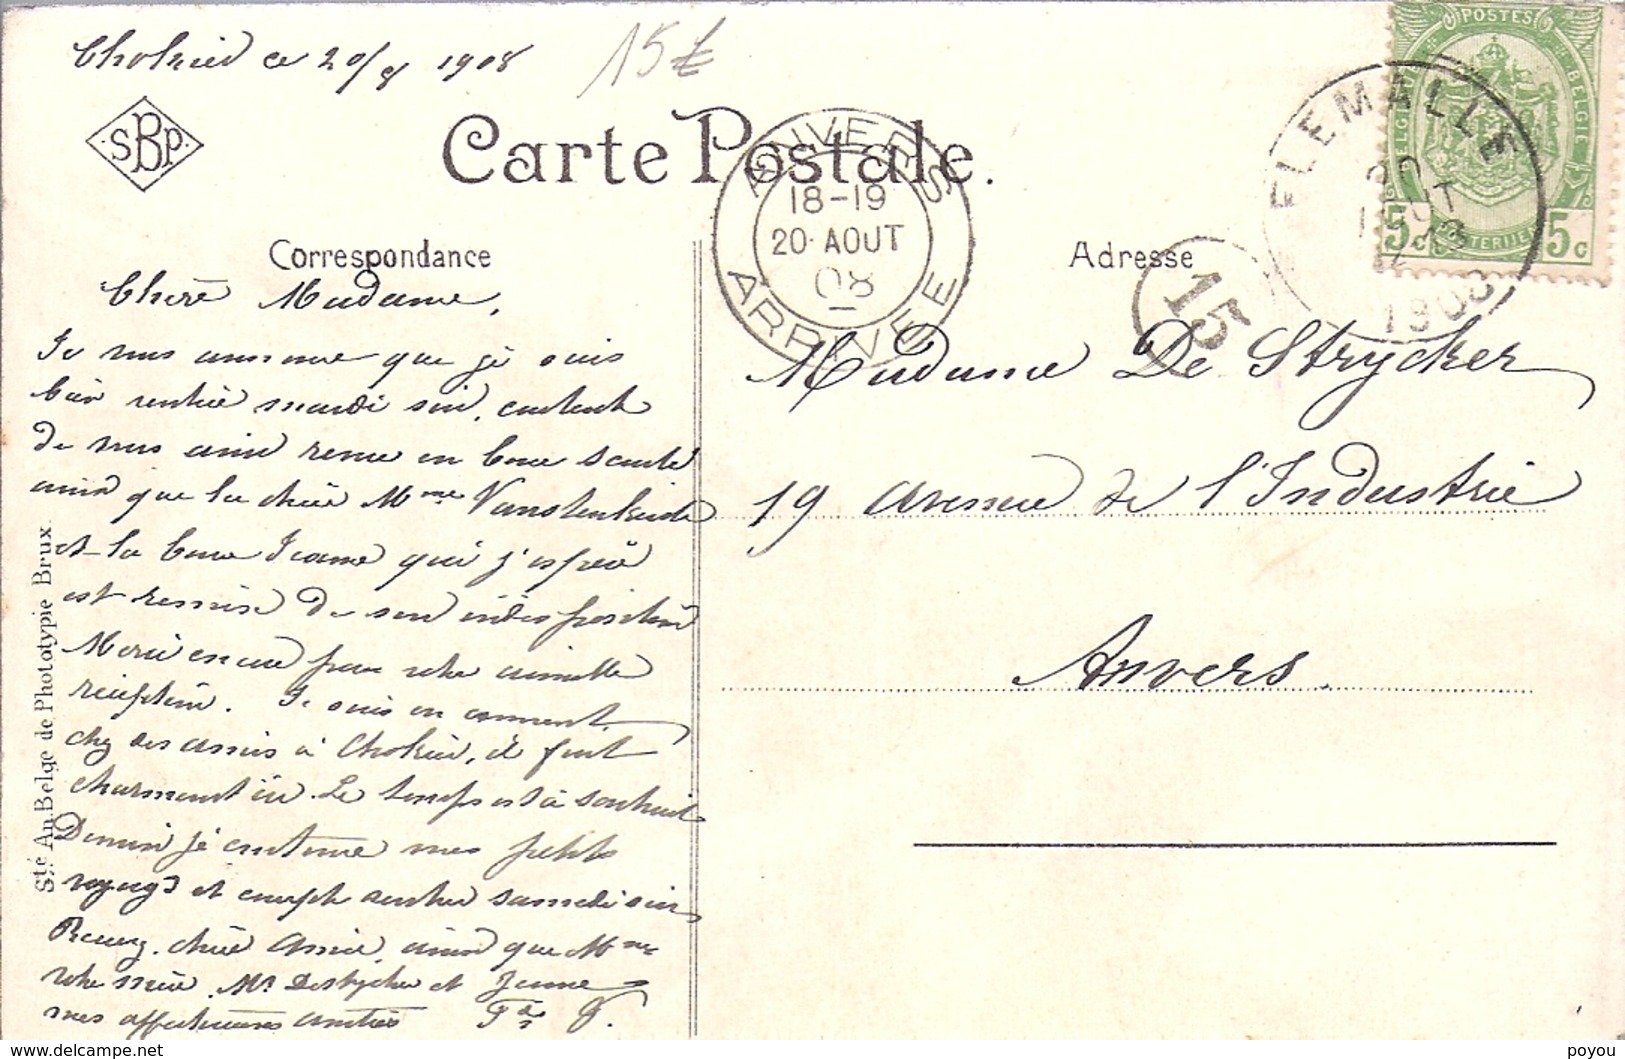 Chokier ce 20/8 1908
15
SBP
Carte Postale.
ANVERS
18-19
20 AOUT
08
ARRIVÉE
POSTES
BELGIQUE BELGIE
POSTERIJEN
5c 5c
FLEMALLE
20
AOUT
1908
15
Correspondance
Adresse
Chère Madame,
Je vous annonce que je suis
bien rentrée mardi soir, contente
de vous avoir revue en bonne santé
ainsi que la chère Mme
et la bonne Jeanne qui j'espère
est remise de son indisposition
Merci encore pour votre aimable
réception. Je suis en ce moment
chez des amis à Chokier, il fait
charmant ici. Le temps est à souhait
Demain je continue mes petits
voyages et compte rentrer samedi soir
Recevez, chère Amie, ainsi que Mme
votre mère, Mr Destrycker et Jeanne
mes affectueuses amitiés
Madame De Strycker
19 avenue de l'Industrie
Anvers.
Sté An. Belge de Phototypie Brux.
www.delcampe.net
poyou